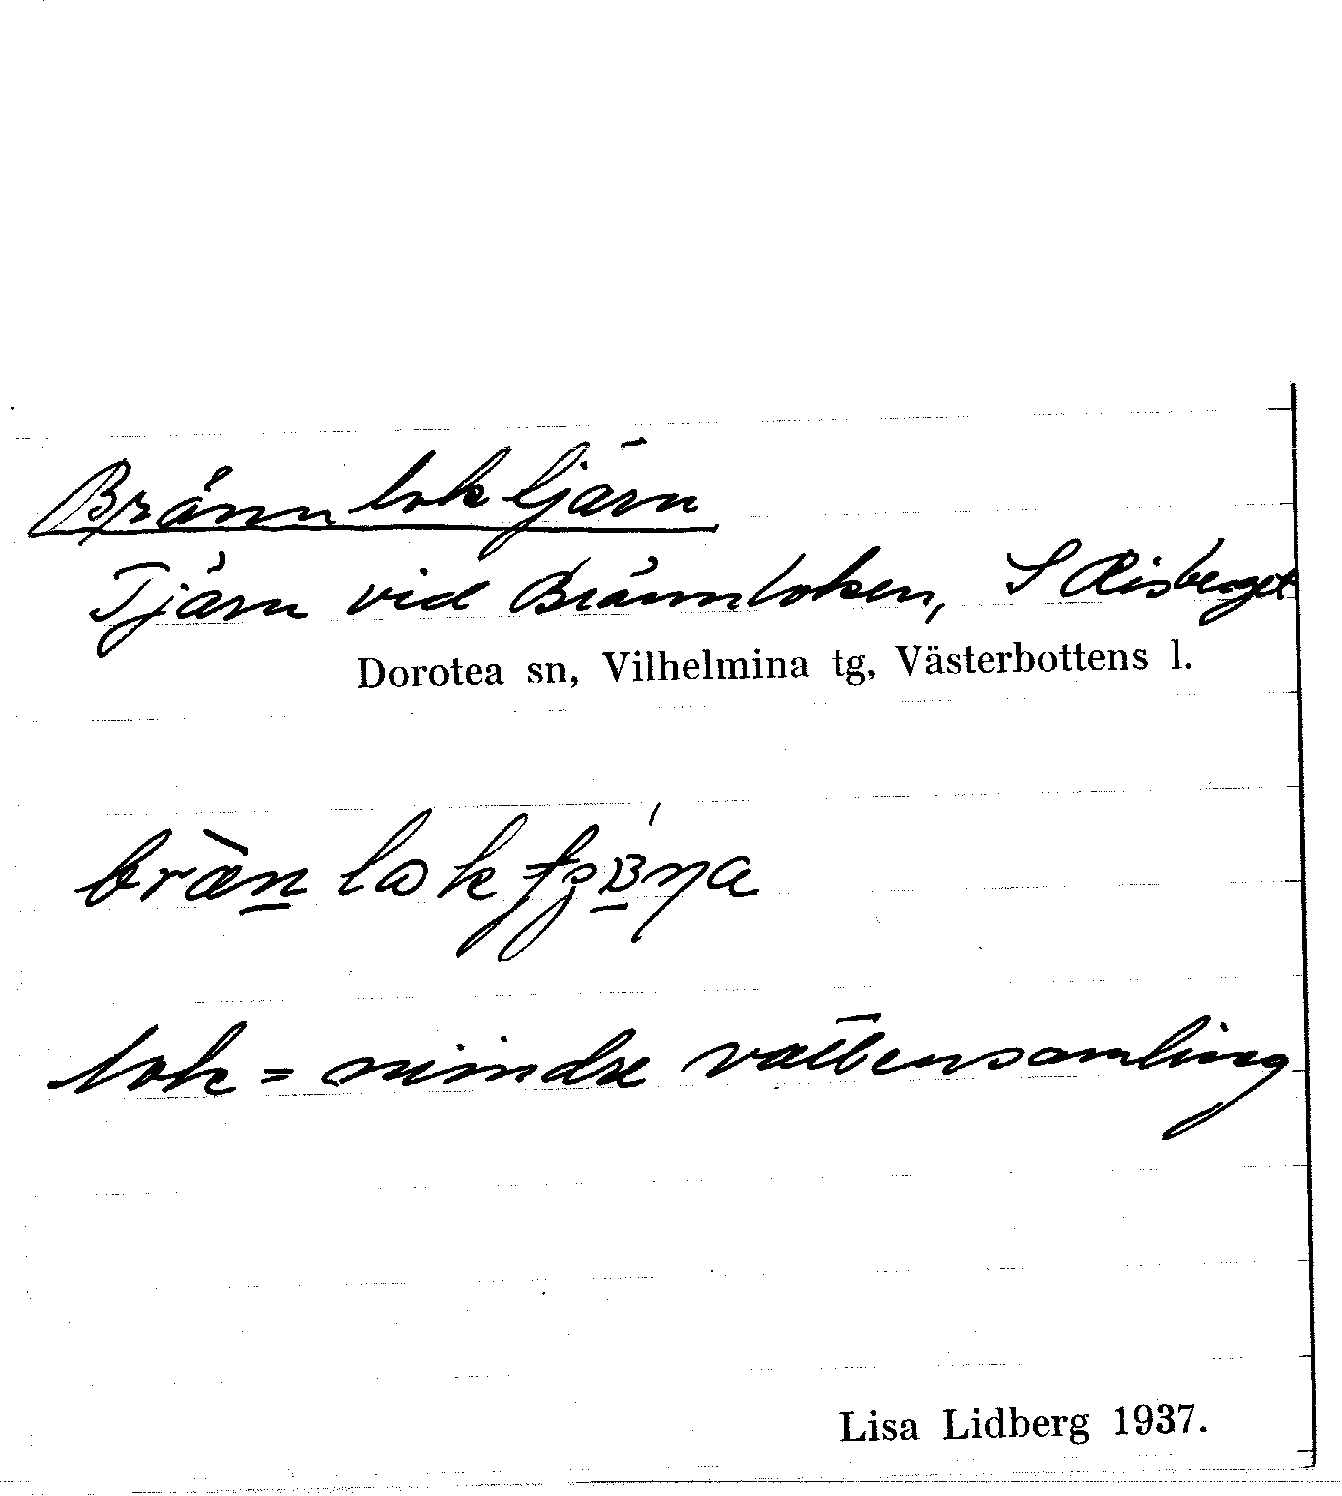 Brännloktjärn
Tjärn vid Brännloken, S Risberget
Dorotea sn, Vilhelmina tg, Västerbottens l.
lok = mindre vattensamling
Lisa Lidberg 1937.